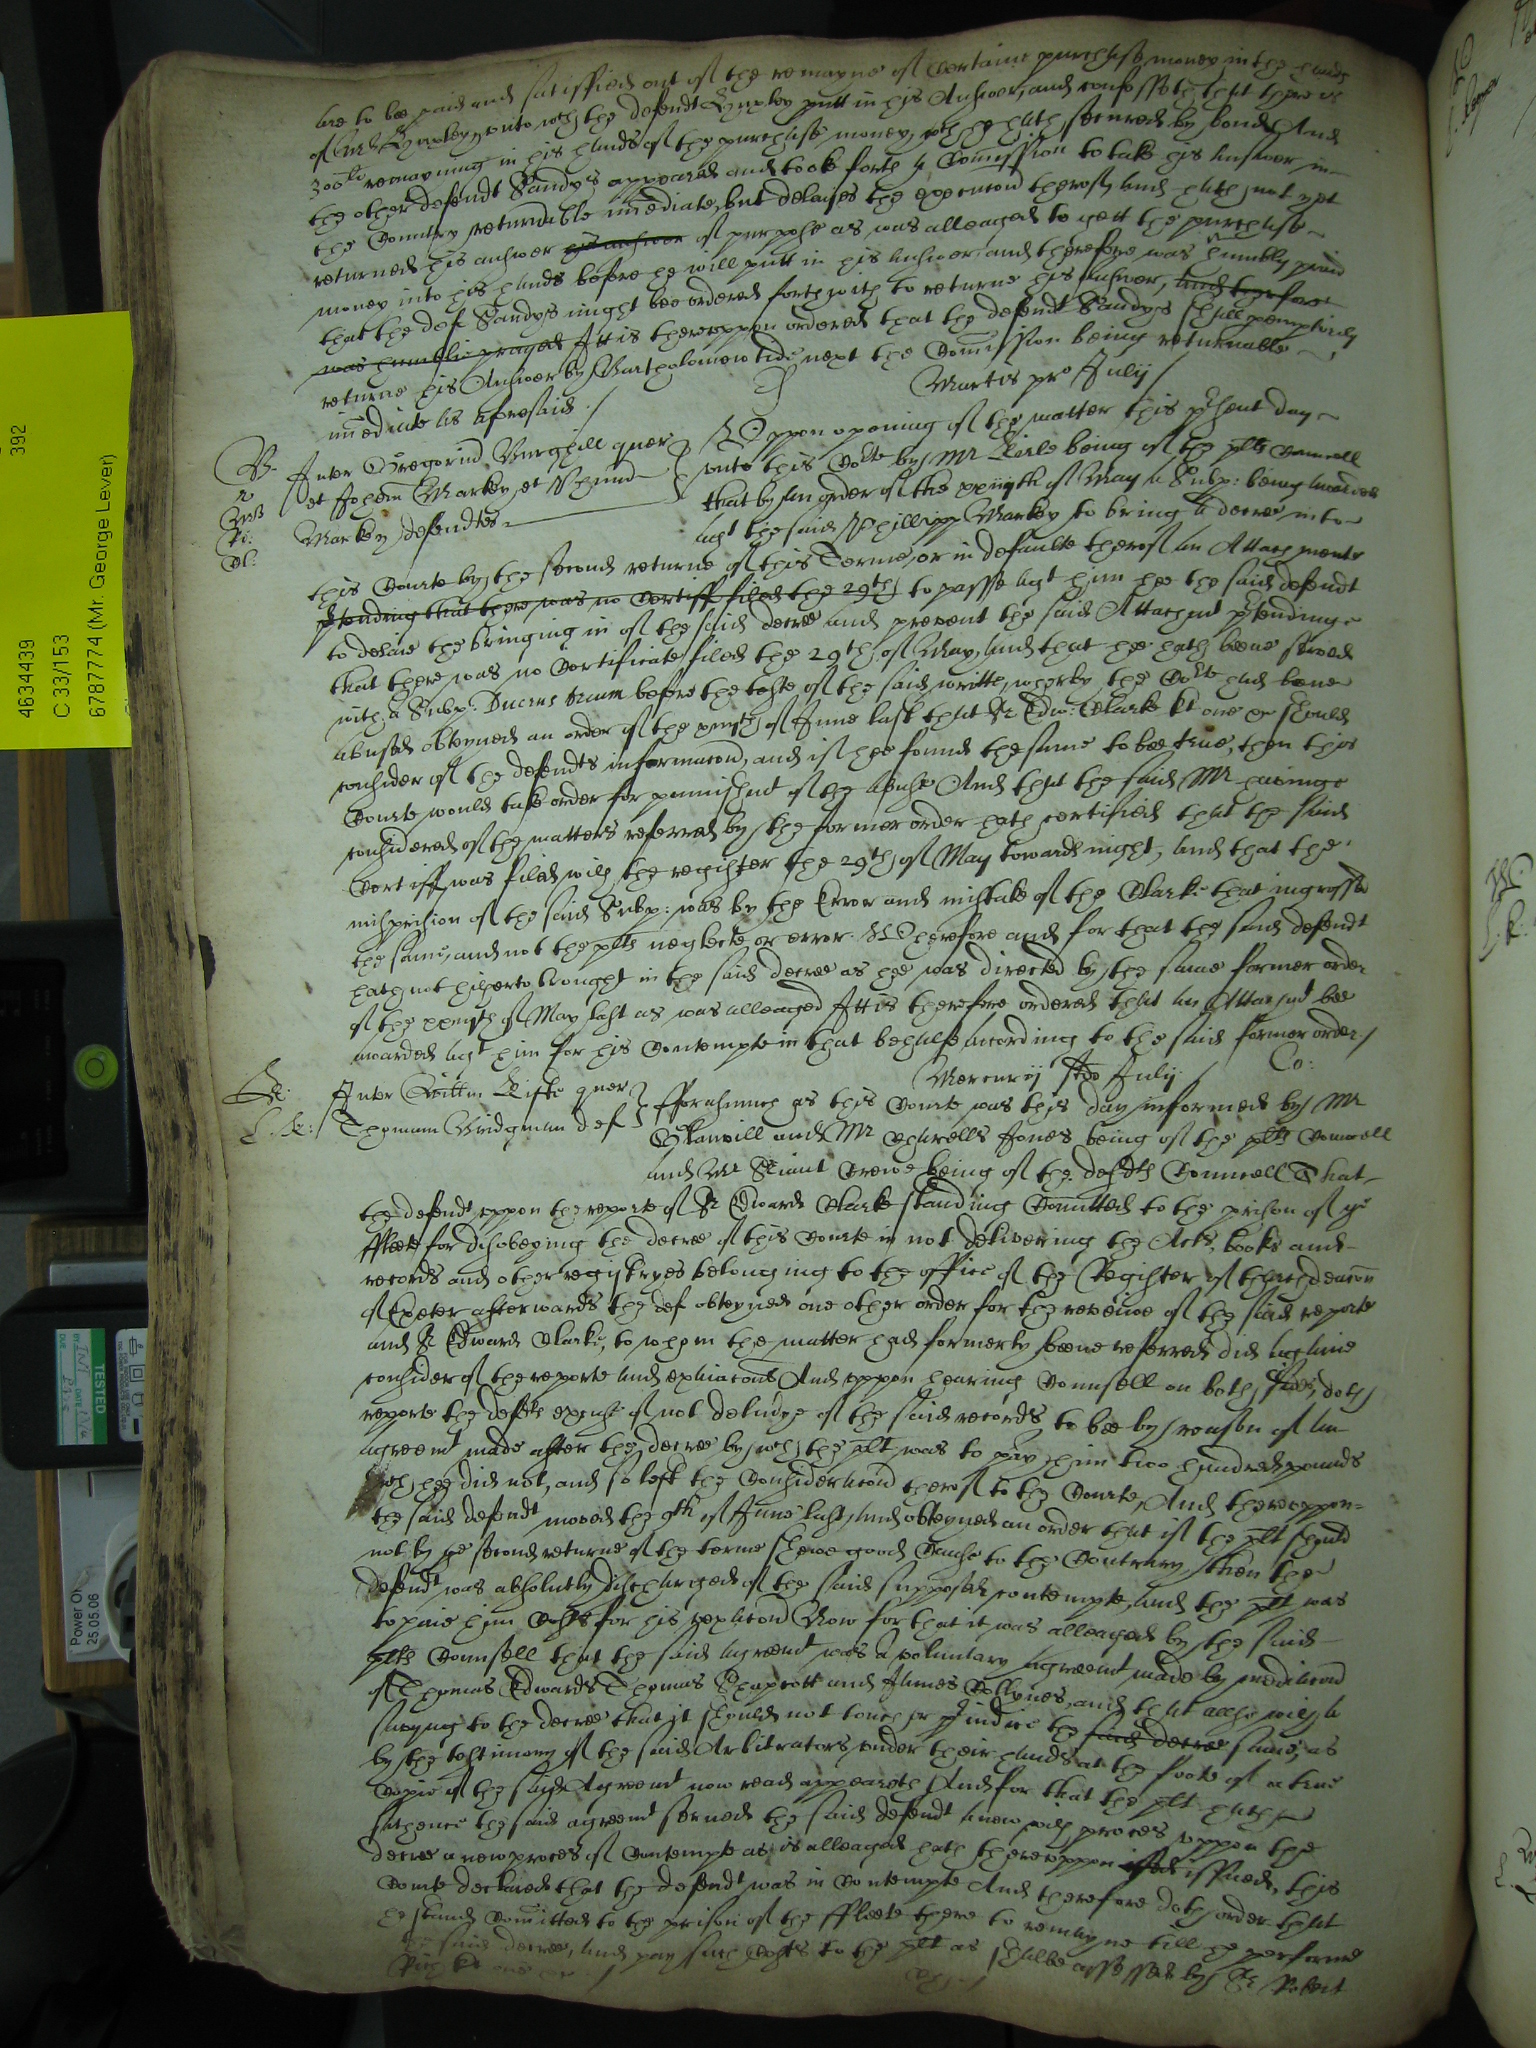 are to bee paid and satisfied out of the remayne of Certaine purchase money in the hands
of Mr unto wch the defendt putt in his Answer, and confesseth that there is
300li remayning in his hands of the purchase money, wch he hath secured by bond, And
the other defendt Sandys appeared and tooke forth a Comission to take his answer in
the Country returnable imediate, but delaies the execucon thereof, and hath not yet
returned his answer his answer of purpose as was alleaged to gett the purchase
money into his hands before he will putt in his answer and therefore was humbly praid
that the def Sandys might bee ordered forthwith to returne his answer, and therefore
was humblie prayed Itt is thereuppon ordered that the defendt Sandys shall peremptorily
returne his Answer by Bartholomew tide next the Comission being returnable
imediate as aforesaid /
Martis pro Julij /
Inter Gregoriu Burghill quer
et Johem Markey et
Markey defendtes
Uppon opening of the matter this psent day
unto this Court by Mr being of the plts Councell
that by an order of the xxiijth of May a Subp: being awarded
agt the said Phillipp Markey to bring a decree into
this Courte by the second returne of this Terme, or in defaulte thereof an Attachmente
pfending that there was no Certiff filed the 29th to passe agt him hee the said defendt
to delaie the bringing in of the said decree and prevent the said Attachmt ptendinge
that there was no Certificate filed the 29th of May, and that hee hath beene served
with a Subp: Ducens decum before the teste of the said writte, wherby the Court had beene
abused obteyned an order of the of June last that Sr Edw: Clarke kt one &c should
consider of the defendts informacon, and if hee found the same to bee true, then this
Courte would take order for punnishmt of the abuse And that the said Mr havinge
considered of the matters referred by the former order hath certified that the said
Certiff was filed with the register the 29th of May towards night, and that the
misprision of the said Subp: was by the Error and mistake of the Clarke that ingrossed
the same, and not the plts neglecte or error. Wherefore and for that the said defendt
hath not hitherto brought in the said decree as hee was directed by the same former order
of the of May last as was alleaged Itt is therefore ordered that an Attachmt bee
awarded agt him for his Contempte in that behalfe according to the said former order /
Mercurij sdo Julij / Co:
Inter Willm quer
Thomam Bridgman def
fforasmuch as this Courte was this day informed by Mr
Glanvill and Mr Jones being of the plts Councell
and Mr Sriant Crewe being of the defdts Councell That
the defendt uppon the reporte of Sr Edward Clarke standing Comitted to the prison of ye
ffleete for disobeying the decree of this Courte in not delivering the Acts, books and
records and other registryes belonging to the office of the Register of tharchdeacon
of Exeter afterwards the def obteyned one other order for the reveiwe of the said reporte
and Sr Edward Clarke, to whom the matter had formerly beene referred did againe
consider of the reporte and And uppon hearing Counsell on both sides, doth
reporte the defts excuse of not of the said records to bee by reason of an
agreemt made after the decree by wch the plt was to pay him two hundred pounds
wch hee did not, and so left the Consideracon thereof to the Courte, And thereuppon
the said defendt moved the 9th of June last, and obteyned an order that if the plt should
not by ye second returne of the terme shewe good Cause to the Contrary, then the
defendt was absolutly discharged of the said supposed contempte, and the plt was
to paie him Costs for his vexacon Now for that it was alleaged by the said
plts Counsell that the said agreemt was a voluntary agreemt made by mediacon
of Thomas Edwards Thomas Shapcott and James Collynes, and that allso with a
saving to the decree that it should not touch or pjudice the said decree same, as
by the testimony of the said Arbitrators, under their hands at the foote of a true
Copie of the said Agreemt now read appeareth And for that the plt hath
sithence the said agreemt served the said defendt anew with proces uppon the
decree a new proces of Contempte as is alleaged hath thereuppon issued, this
Courte declared that the defendt was in Contempte And therefore doth order that
he stand Comitted to the prison of the ffleete there to remayne till he performe
the said decree, and pay such Costs to the plt as shalbe assessed by Sr Robert
Rich kt one &c /
4634439
392
C 33/153
67877774 (Mr. George Lever)
TESTED
Power O
25.05.06